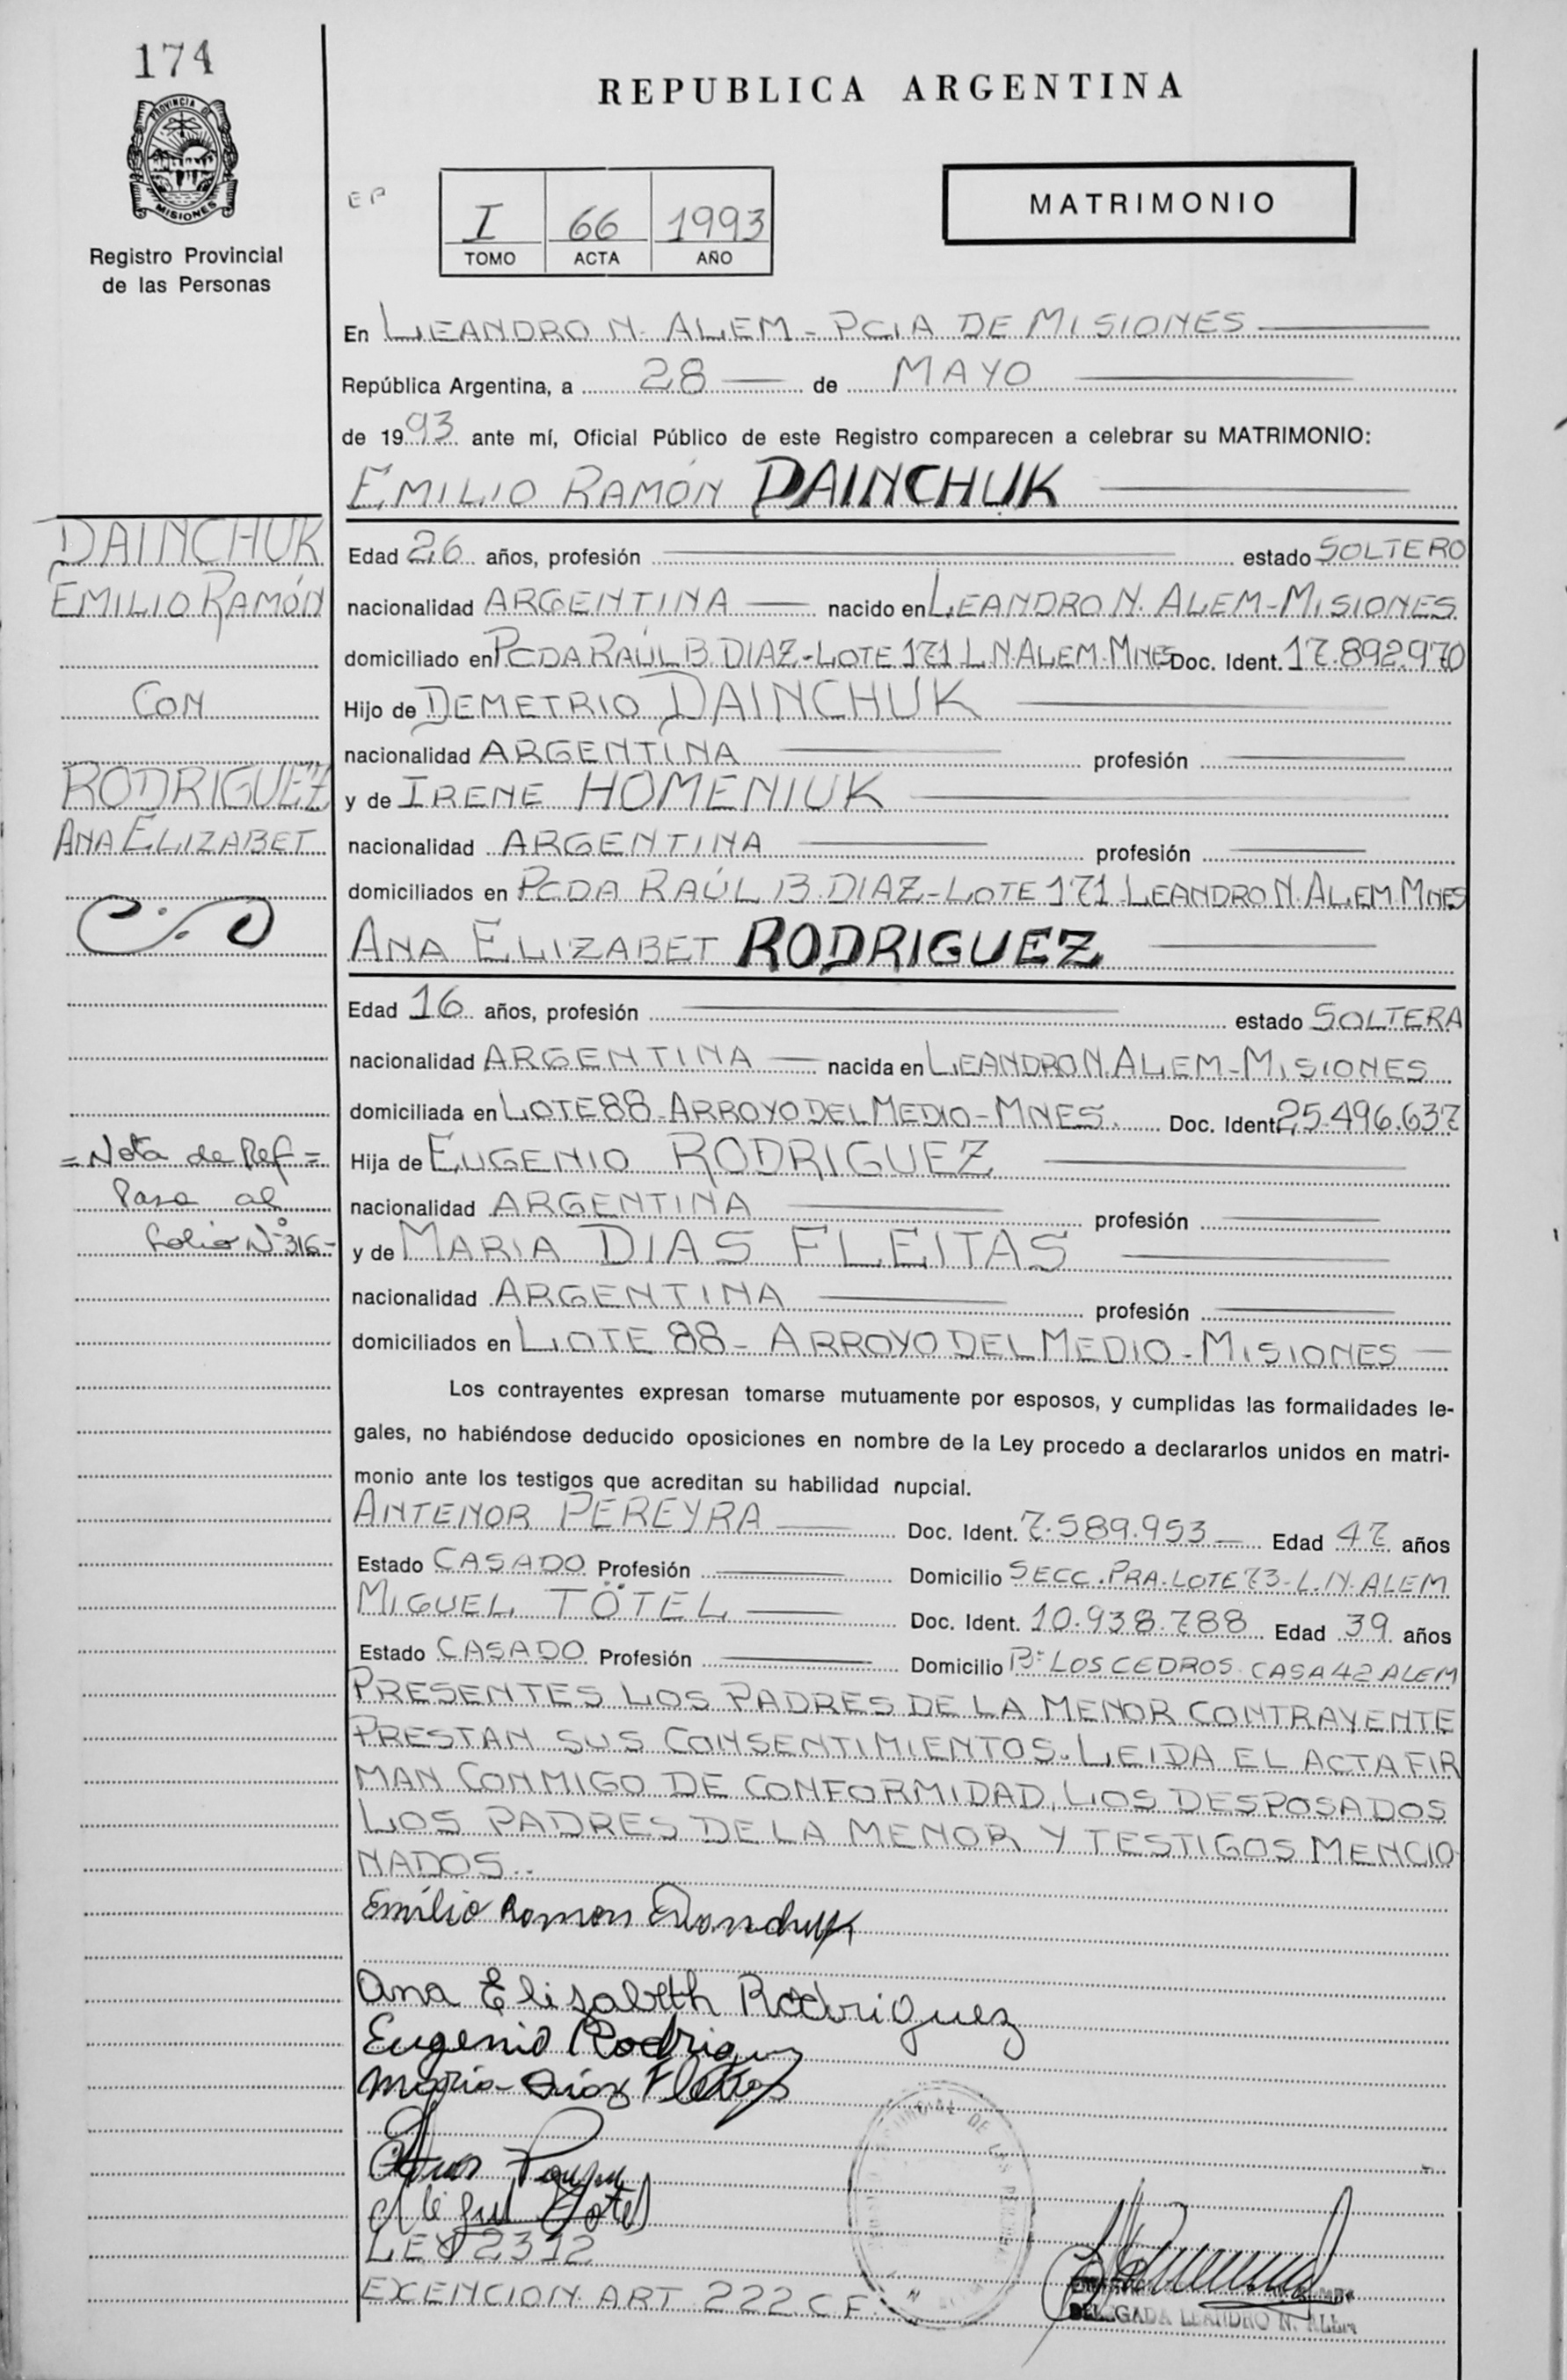 174
PROVINCIA DE
MISIONES
Registro Provincial
de las Personas
REPUBLICA ARGENTINA
EP
I 66 1993
TOMO ACTA AÑO
MATRIMONIO
En LEANDRO N. ALEM - PCIA DE MISIONES
República Argentina, a 28 de MAYO
de 1993 ante mí, Oficial Público de este Registro comparecen a celebrar su MATRIMONIO:
EMILIO RAMÓN DAINCHUK
DAINCHUK
EMILIO RAMÓN
CON
RODRIGUEZ
ANA ELIZABET
Edad 26 años, profesión estado SOLTERO
nacionalidad ARGENTINA nacido en LEANDRO N. ALEM - MISIONES
domiciliado en PCDA RAÚL B. DIAZ - LOTE 171 L.N. ALEM. MNES Doc. Ident. 17.892.970
Hijo de DEMETRIO DAINCHUK
nacionalidad ARGENTINA profesión
y de IRENE HOMENIUK
nacionalidad ARGENTINA profesión
domiciliados en PCDA RAÚL B. DIAZ - LOTE 171 - LEANDRO N. ALEM MNES
ANA ELIZABET RODRIGUEZ
Edad 16 años, profesión estado SOLTERA
nacionalidad ARGENTINA nacida en LEANDRO N. ALEM - MISIONES
domiciliada en LOTE 88 - ARROYO DEL MEDIO - MNES. Doc. Ident. 25.496.637
= Nota de Ref =
Pasa al
folio Nº 316 -
Hija de EUGENIO RODRIGUEZ
nacionalidad ARGENTINA profesión
y de MARIA DIAS FLEITAS
nacionalidad ARGENTINA profesión
domiciliados en LOTE 88 - ARROYO DEL MEDIO - MISIONES
Los contrayentes expresan tomarse mutuamente por esposos, y cumplidas las formalidades le-
gales, no habiéndose deducido oposiciones en nombre de la Ley procedo a declararlos unidos en matri-
monio ante los testigos que acreditan su habilidad nupcial.
ANTENOR PEREYRA Doc. Ident. 7.589.953 Edad 47 años
Estado CASADO Profesión Domicilio SECC. PRA. LOTE 73 - L.N. ALEM
MIGUEL TÖTEL Doc. Ident. 10.938.788 Edad 39 años
Estado CASADO Profesión Domicilio Bº LOS CEDROS. CASA 42 ALEM
PRESENTES LOS PADRES DE LA MENOR CONTRAYENTE
PRESTAN SUS CONSENTIMIENTOS. LEIDA EL ACTA FIR
MAN CONMIGO DE CONFORMIDAD, LOS DESPOSADOS
LOS PADRES DE LA MENOR Y TESTIGOS MENCIO
NADOS..
Emilio Ramon Dainchuk
Ana Elisabeth Rodriguez
Eugenio Rodriguez
Maria Diaz Fleitas
Miguel Totel
LEY 2312
EXENCION ART 222 C F.
DELEGADA LEANDRO N. ALEM